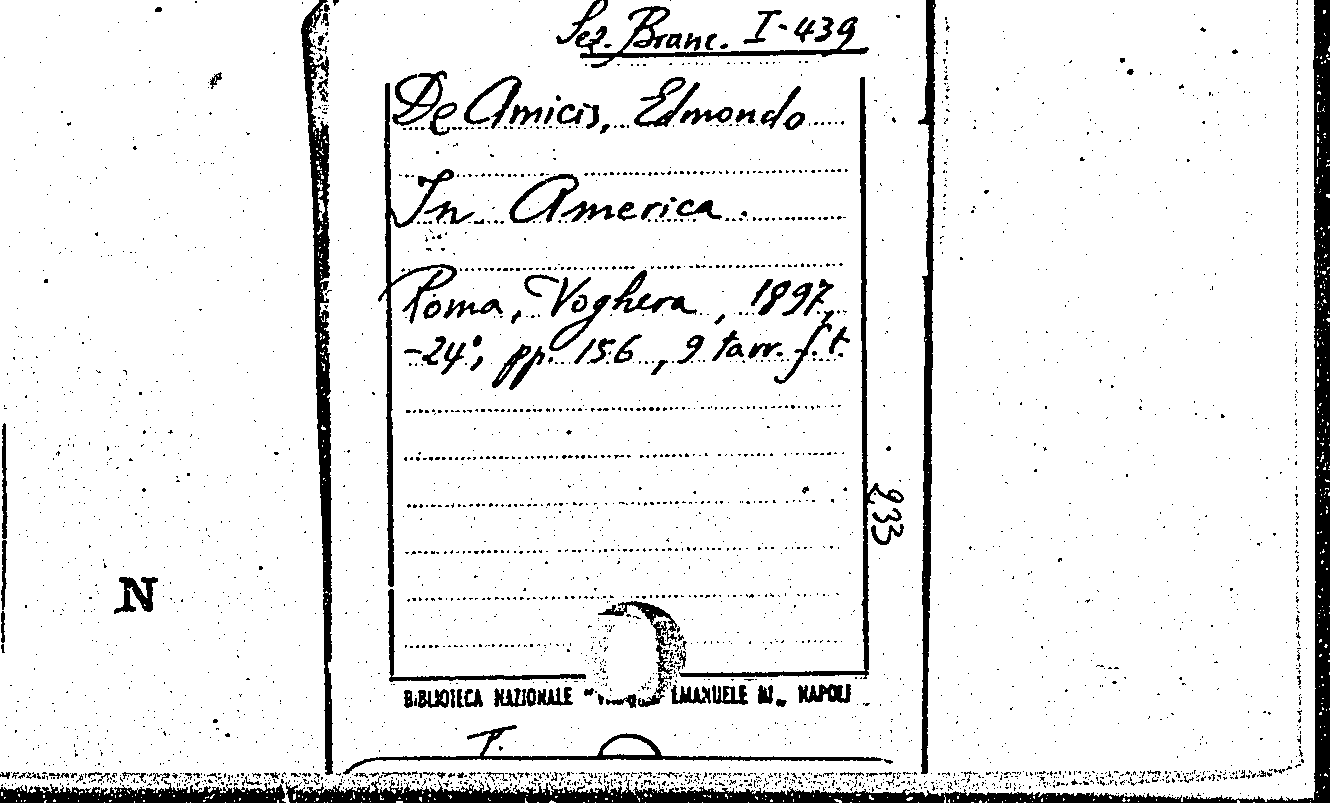 Sez. Branc. I-439
De Amicis, Edmondo
In America.
Roma, Voghera, 1897,
-24°, pp. 156, 9 tavv. f.t.
233
N
BIBLIOTECA NAZIONALE " EMANUELE III„ NAPOLI
T.